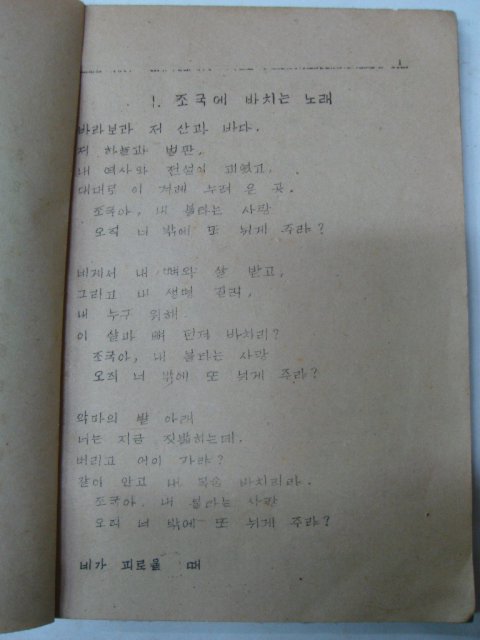 1
1. 조국에 바치는 노래
바라보라 저 산과 바다,
저 하늘과 벌판,
내 역사와 전설이 고였고,
대대로 이 겨레 누려 온 곳.
조국아, 내 불타는 사랑
오직 너 밖에 또 뉘게 주랴?
네게서 내 뼈와 살 받고,
그리고 내 생명 길러,
내 누구 위해
이 살과 뼈 던져 바치리?
조국아, 내 불타는 사랑
오직 너 밖에 또 뉘게 주랴?
악마의 발 아래
너는 지금 짓밟히는데,
버리고 어이 가랴?
같이 안고 내 목숨 바치리라.
조국아, 내 불타는 사랑
오직 너 밖에 또 뉘게 주랴?
네가 괴로울 때